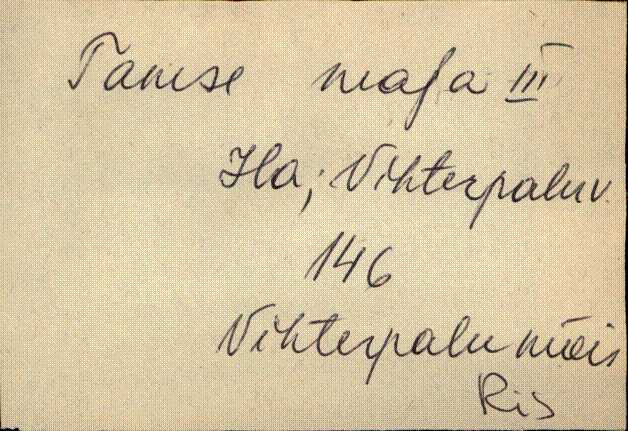 Tamse maja III
Ha; Vihterpalu v.
146
Vihterpalu mõis
Ris